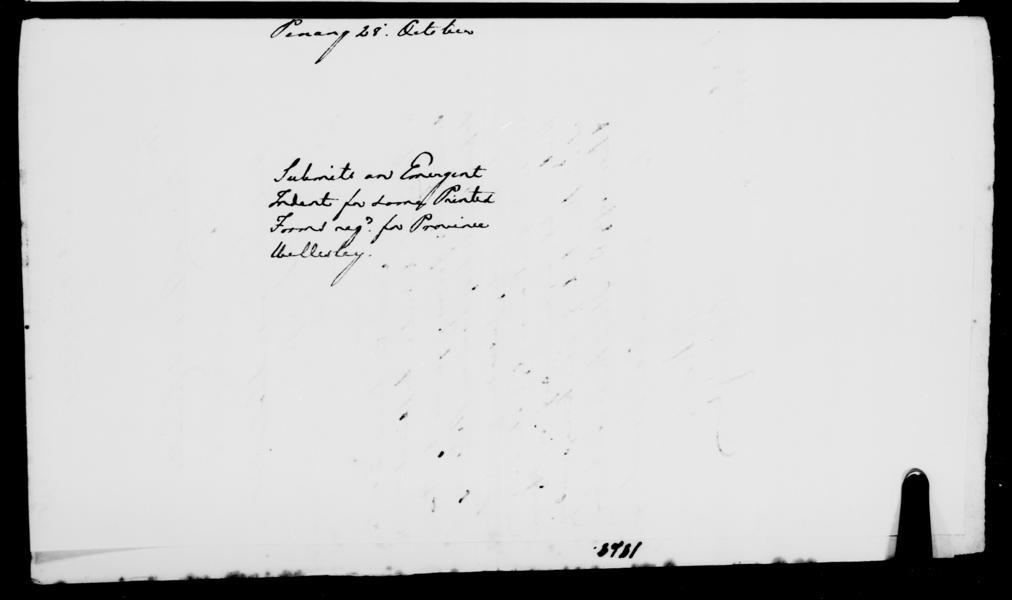 Penang 28. October
Submits an Emergent
Indent for some Printed
Forms reqd. for Province
Wellesley.